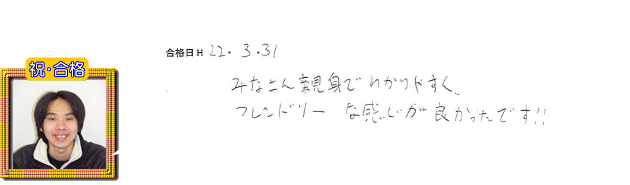 祝・合格
合格日H 22. 3.31
みなさん親身でわかりやすく、
フレンドリーな感じが良かったです!!